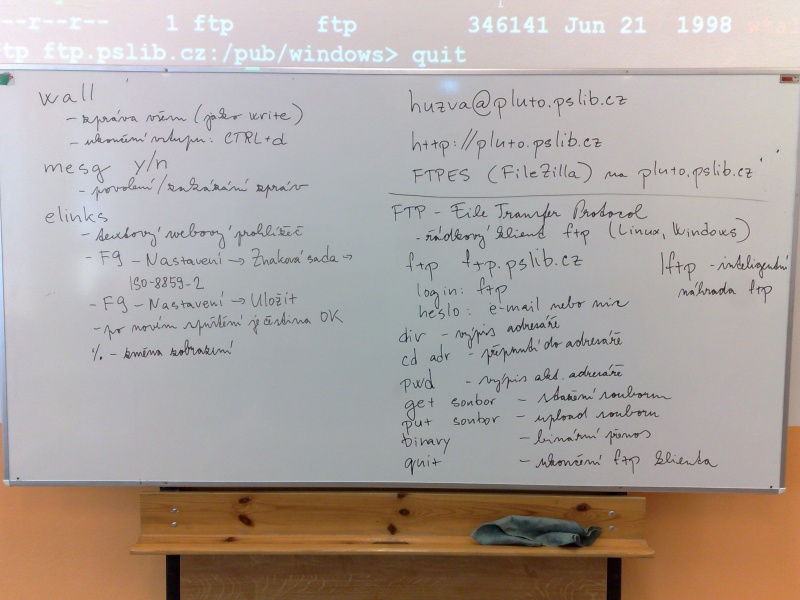 --r--r-- 1 ftp ftp 346141 Jun 21 1998
tp ftp.pslib.cz:/pub/windows> quit
wall
- zpráva všem (jako write)
- ukončení vstupu: CTRL+d
mesg y/n
- povolení/zakázání zpráv
elinks
- textový webový prohlížeč
- F9 - Nastavení → Znaková sada →
ISO-8859-2
- F9 - Nastavení → Uložit
- po novém spuštění je čeština OK
% - změna zobrazení
huzva@pluto.pslib.cz
http://pluto.pslib.cz
FTPES (FileZilla) na pluto.pslib.cz
FTP - File Transfer Protocol
- řádkový klient ftp (Linux, Windows)
ftp ftp.pslib.cz
login: ftp
heslo: e-mail nebo nic
dir - výpis adresáře
cd adr - přepnutí do adresáře
pwd - výpis akt. adresáře
get soubor - stažení souboru
put soubor - upload souboru
binary - binární přenos
quit - ukončení ftp klienta
lftp - inteligentní
náhrada ftp